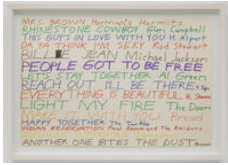 MRS. BROWN Herman's Hermits
RHINESTONE COWBOY Glen Campbell
THIS GUY'S IN LOVE WITH YOU H. Alpert
DA YA THINK I'M SEXY Rod Stewart
BILLIE JEAN Michael Jackson
PEOPLE GOT TO BE FREE
LET'S STAY TOGETHER Al Green
REACH OUT I'LL BE THERE 4 Tops
EVERYTHING IS BEAUTIFUL R. Stevens
LIGHT MY FIRE The Doors
MAKE IT WITH YOU Bread
HAPPY TOGETHER The Turtles
INDIAN RESERVATION Paul Revere and the Raiders
ANOTHER ONE BITES THE DUST